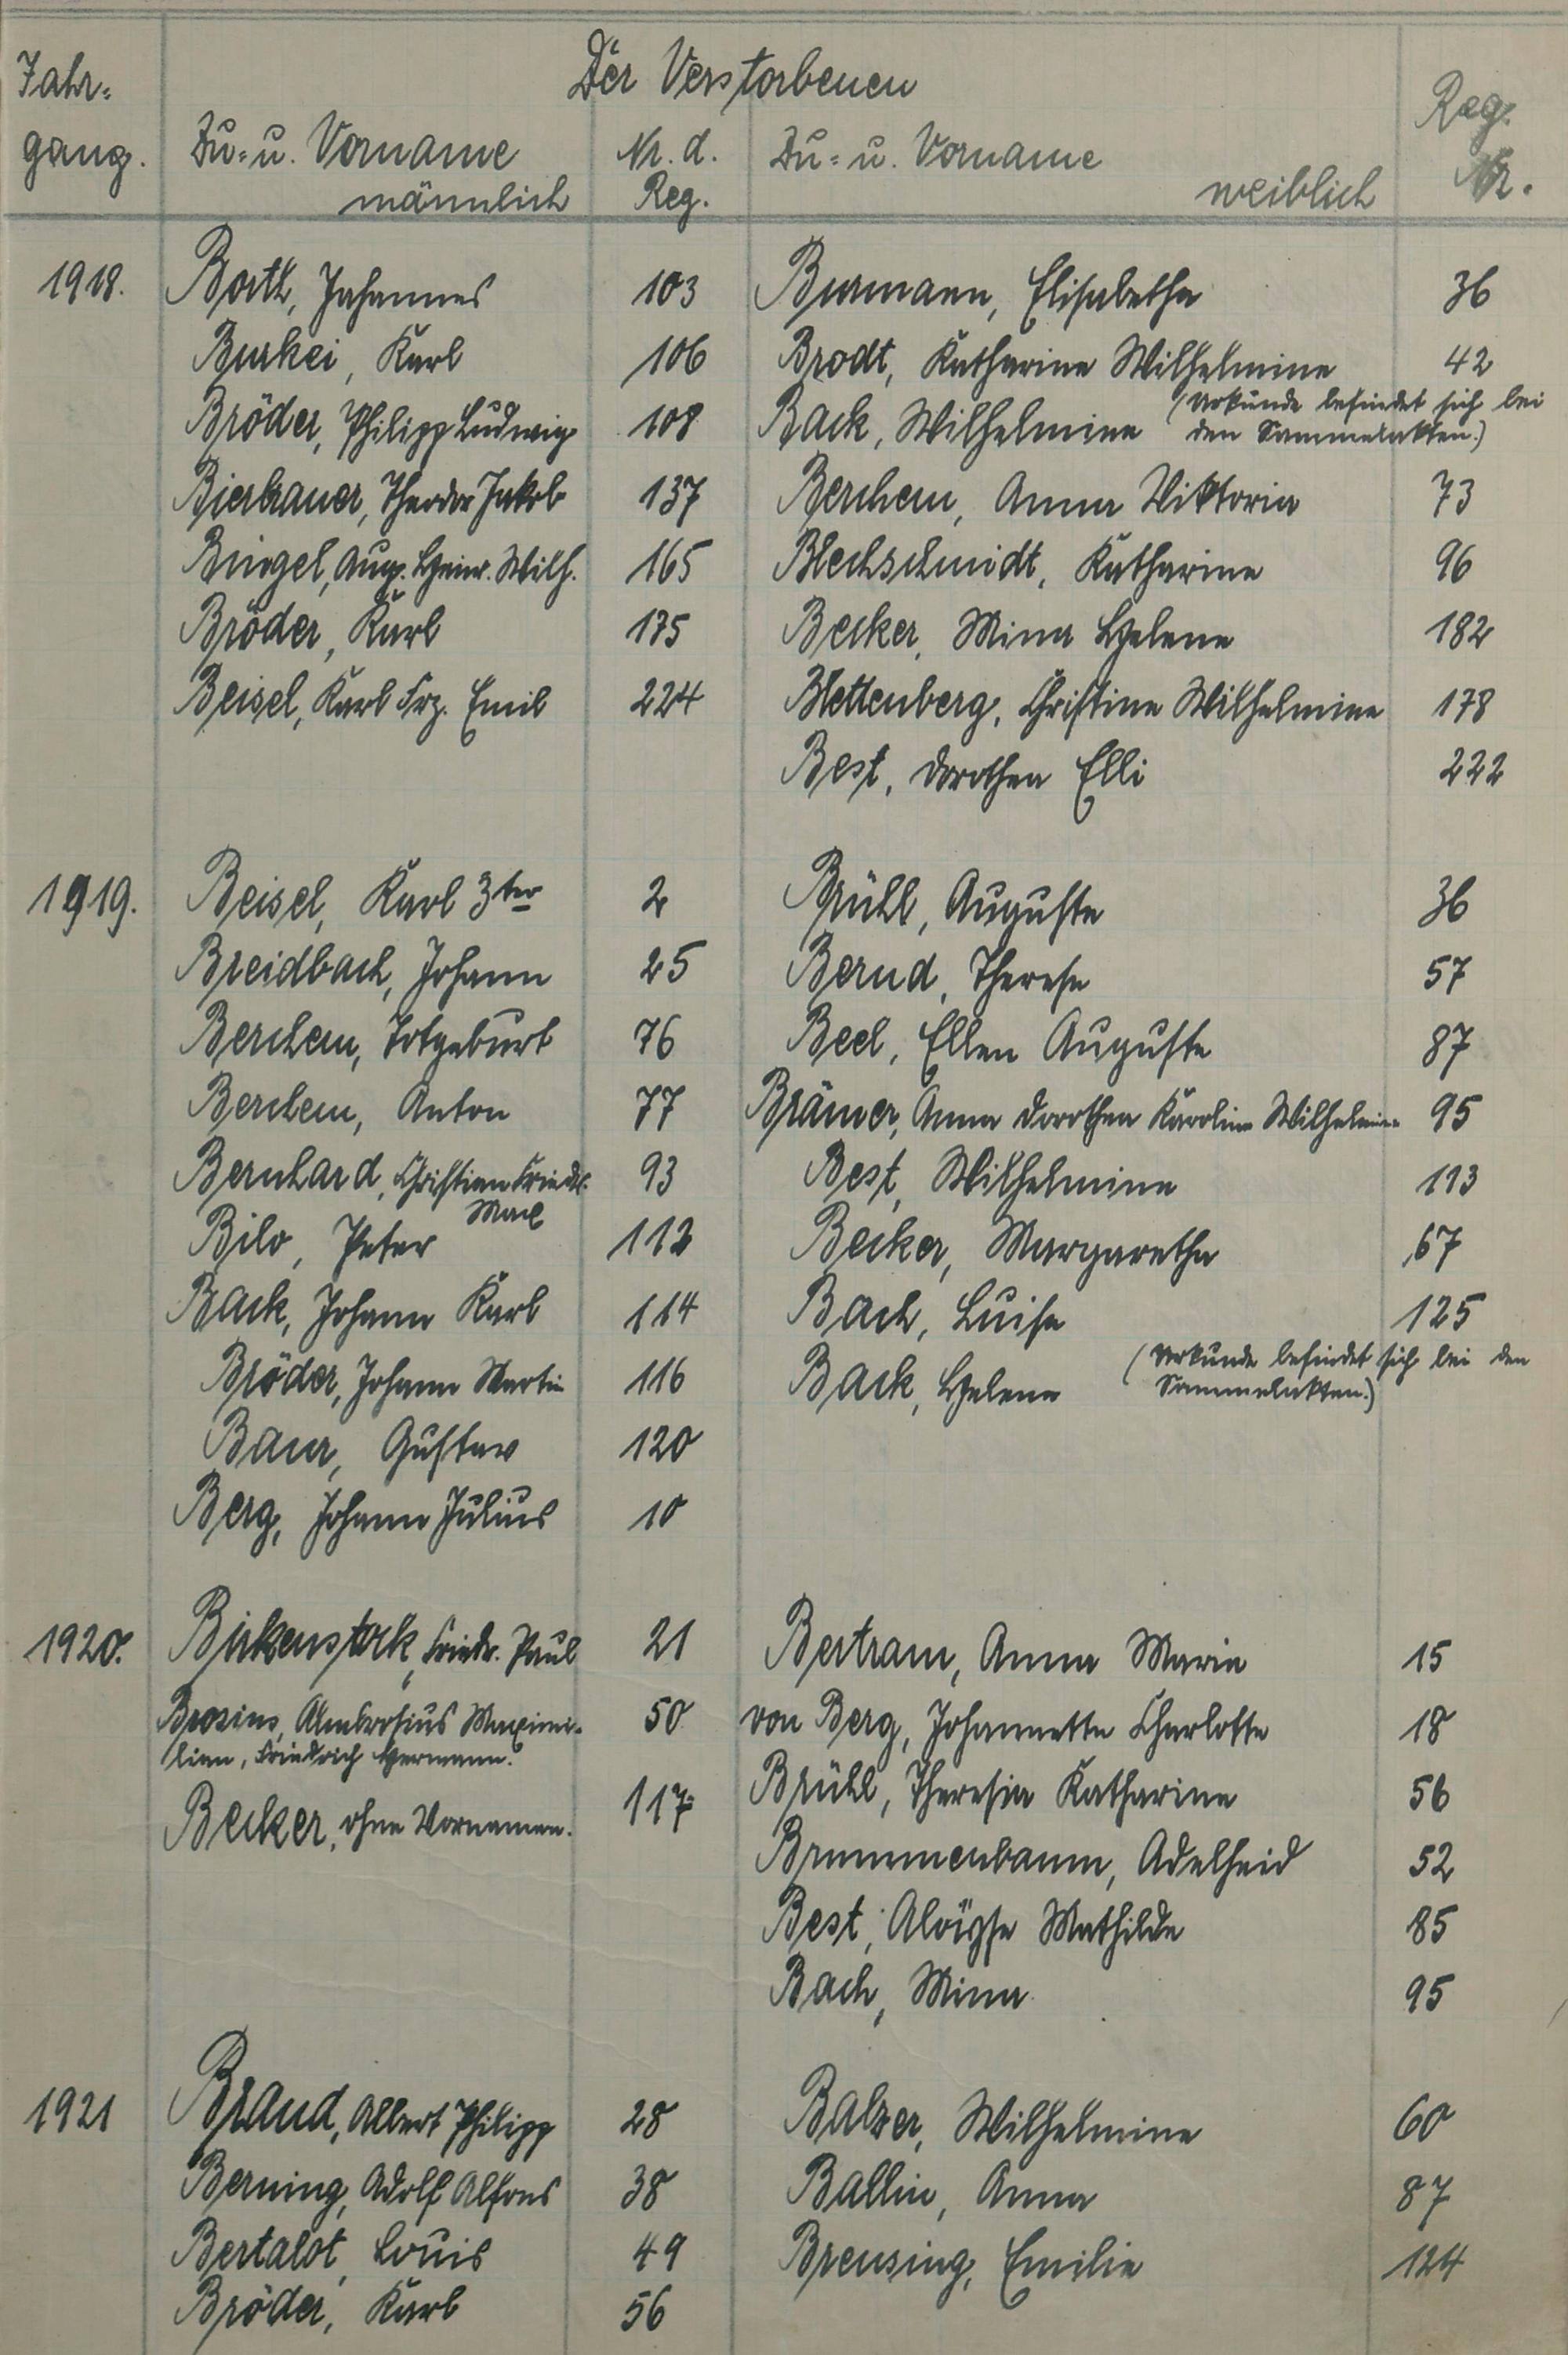 Der Verstorbenen
Jahr=
gang.
Zu= u. Vorname
männlich
Nr. d.
Reg.
Zu= u. Vorname
weiblich
Reg.
Nr.
1918. Barth, Johannes 103 Burmann, Elisabetha 36
Burkei, Karl 106 Brodt, Katharina Wilhelmine 42
Bröder, Philipp Ludwig 108 Back, Wilhelmine (Urkunde befindet sich bei
den Sammelakten.)
Bierbrauer, Theodor Jakob 137 Berchem, Anna Viktoria 73
Bingel, Aug. Heinr. Wilh. 165 Blechschmidt, Katharina 96
Bröder, Karl 175 Becker, Mina Helene 182
Beisel, Karl Frz. Emil 224 Blettenberg, Christine Wilhelmine 178
Best, Dorothea Elli 222
1919. Beisel, Karl 3ter 2 Brühl, Auguste 36
Breidbach, Johann 25 Bernd, Therese 57
Berchem, Totgeburt 76 Beel, Ellen Auguste 87
Berchem, Anton 77 Brämer, Anna Dorothea Karoline Wilhelmine 95
Bernhard, Christian Friedr. 93 Best, Wilhelmine 113
Max
Bilo, Peter 112 Becker, Margaretha 67
Back, Johann Karl 114 Bach, Luise 125
Bröder, Johann Martin 116 Back, Helene (Urkunde befindet sich bei den
Sammelakten.)
Baur, Gustav 120
Berg, Johann Julius 10
1920. Birkenstock, Friedr. Paul 21 Bertram, Anna Maria 15
Brosius, Ambrosius Maximi- 50 von Berg, Johannette Charlotte 18
lian, Friedrich Hermann.
Becker, ohne Vornamen. 117 Brühl, Theresia Katharina 56
Brummenbaum, Adelheid 52
Best, Aloÿse Mathilde 85
Bach, Mina 95
1921 Brand, Albert Philipp 28 Balzer, Wilhelmine 60
Berning, Adolf Alfons 38 Ballin, Anna 87
Bertalot, Louis 49 Breusing, Emilie 124
Bröder, Karl 56